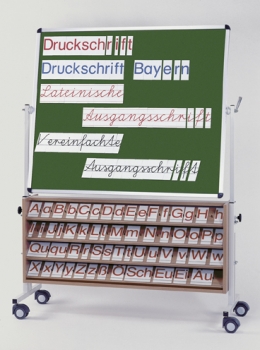 Druckschrift
Druckschrift Bayern
Lateinische
Ausgangsschrift
Vereinfachte
Ausgangsschrift
Aa Bb Cc Dd Ee Ff Gg Hh
Ii Jj Kk Ll Mm Nn Oo Pp
Ququ Rr Ss Tt Uu Vv Ww
Xx Yy Zz ß Ö Sch Eu Ei Au